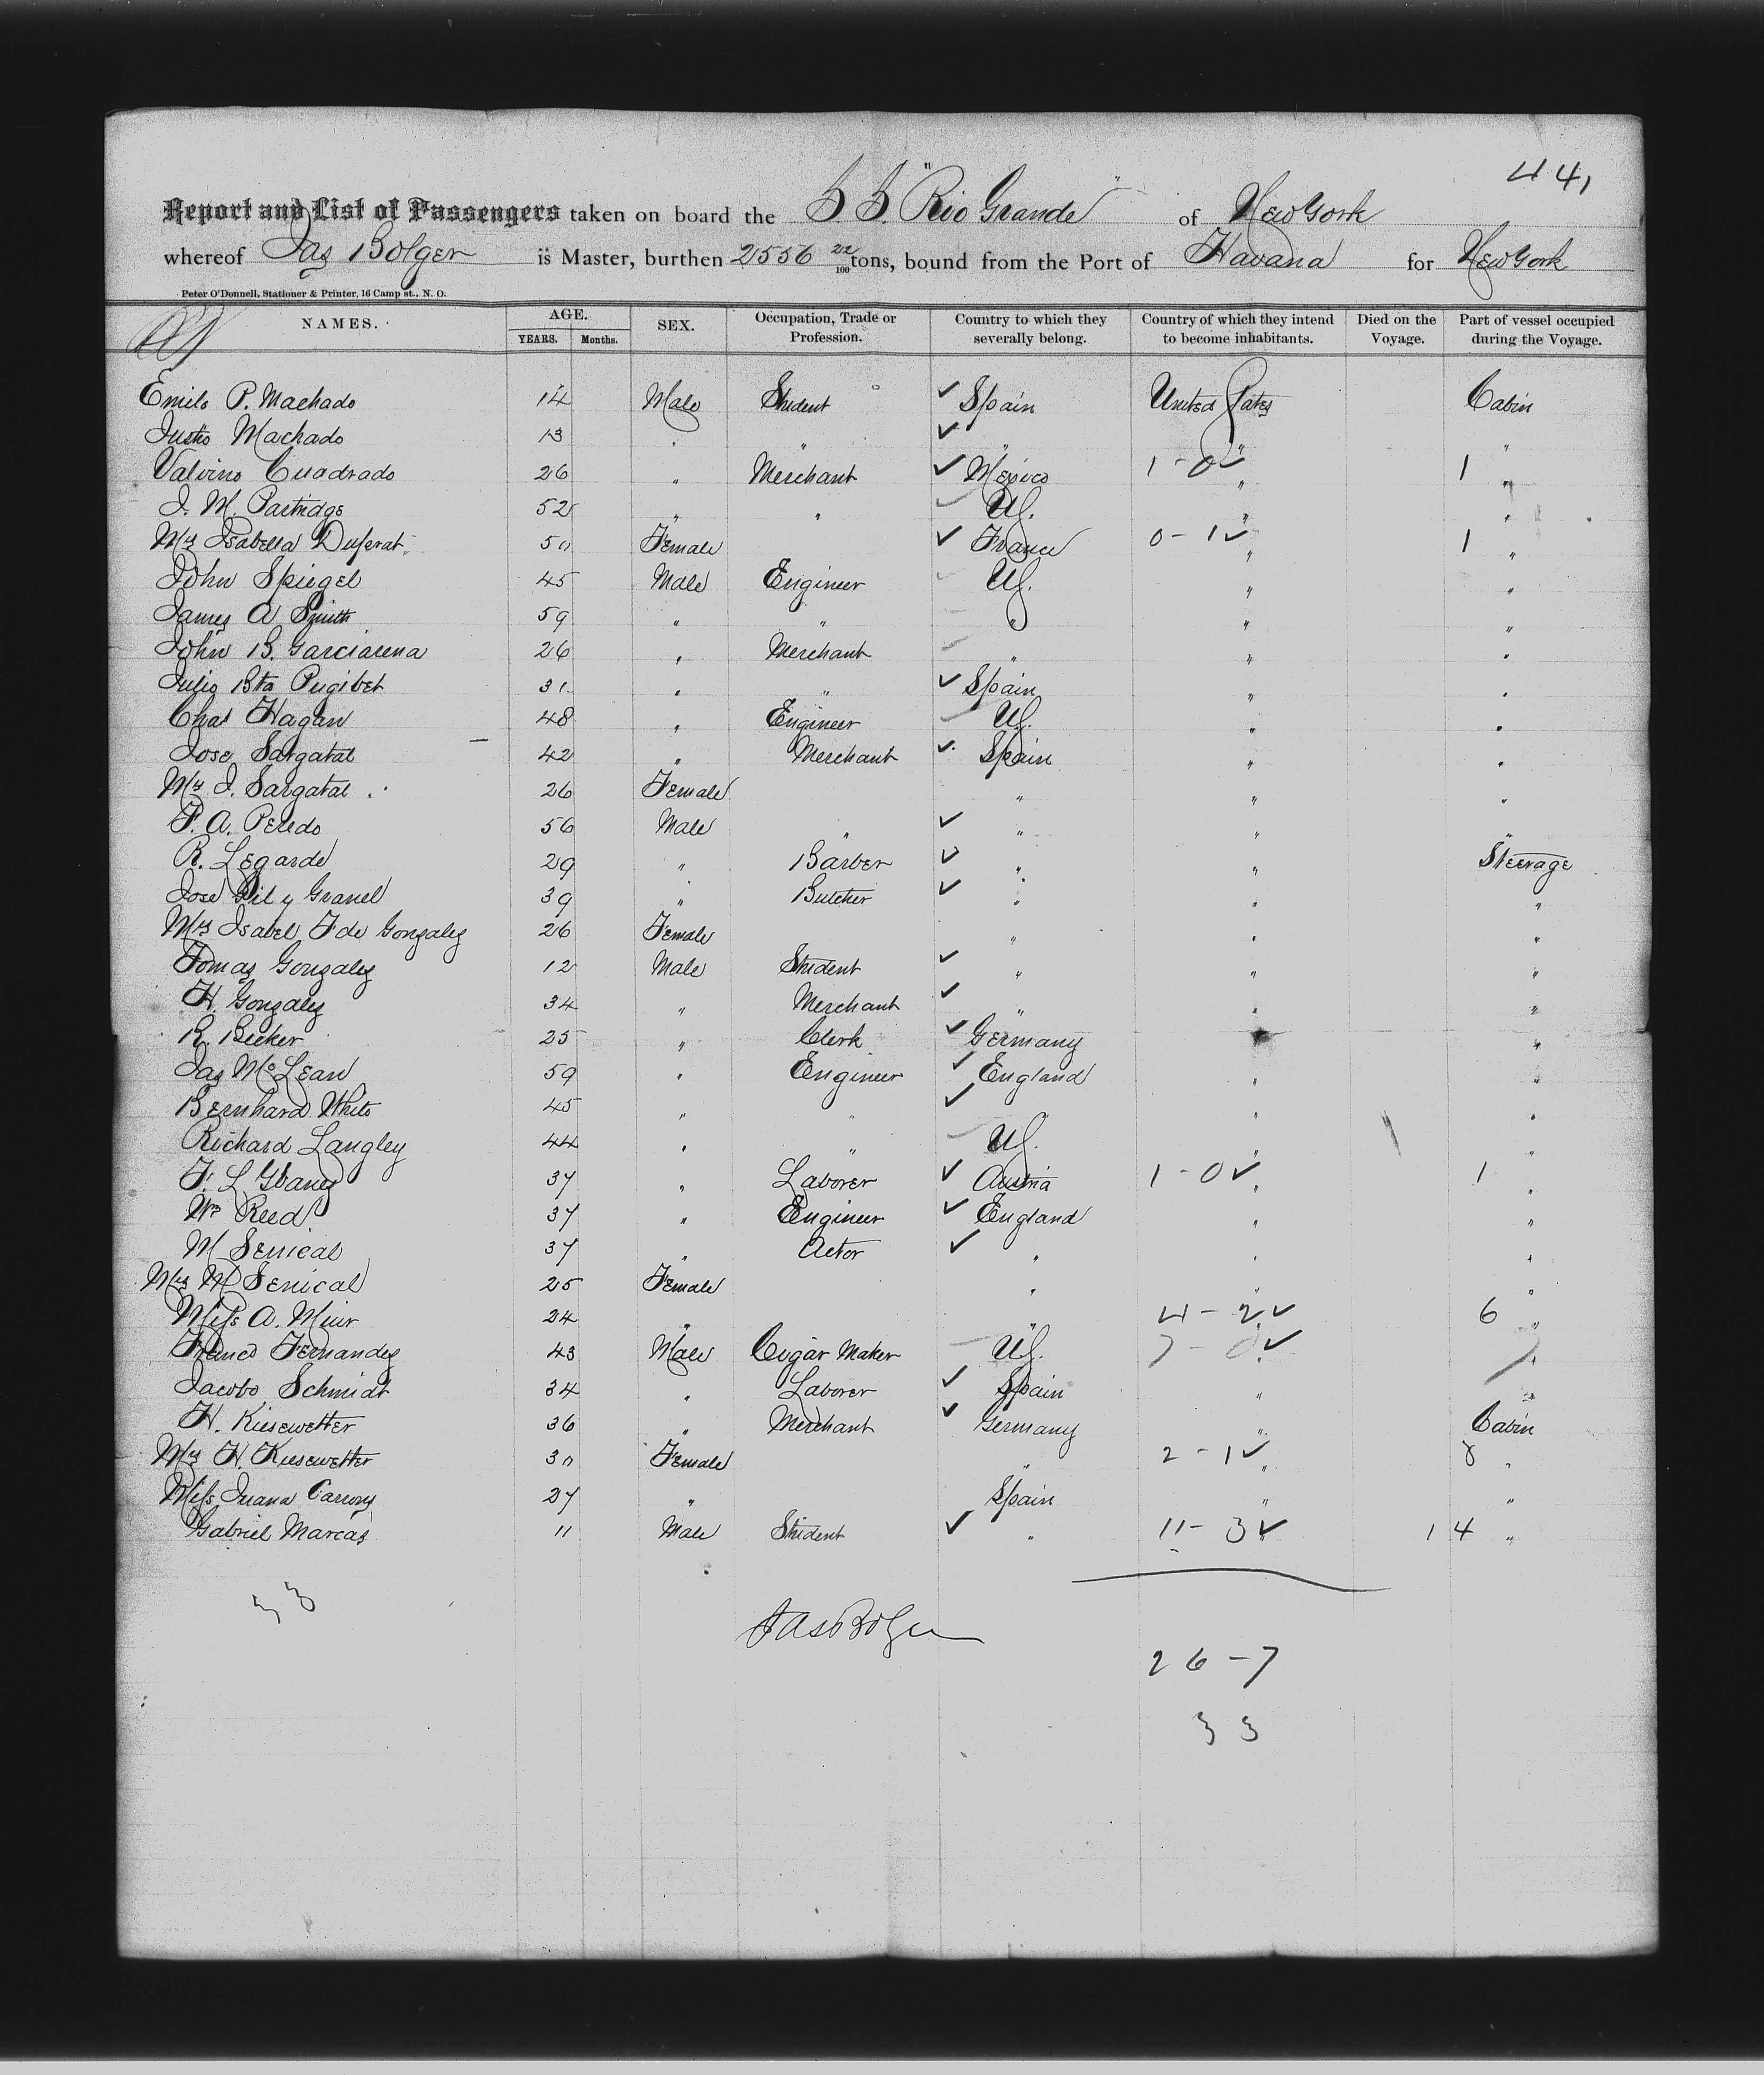 441
Report and List of Passengers taken on board the S S. "Rio Grande" of New York
whereof Jas Bolger is Master, burthen 2556 22/100 tons, bound from the Port of Havana for New York
Peter O'Donnell, Stationer & Printer, 16 Camp st., N. O.
NAMES. AGE. YEARS. Months. SEX. Occupation, Trade or Profession. Country to which they severally belong. Country of which they intend to become inhabitants. Died on the Voyage. Part of vessel occupied during the Voyage.
Emilo P. Machado 14 Male Student ✓ Spain United States Cabin
Justo Machado 13 " " ✓ " " "
Valvino Cuadrado 26 " Merchant ✓ Mexico 1 - 0 ✓ " 1 "
J. M. Partridge 52 " " ✓ US. " "
Mrs Isabella Duferat 50 Female ✓ France 0 - 1 ✓ " 1 "
John Spiegel 45 Male Engineer ✓ US. " "
James A Smith 59 " " " " "
John B. Garciarena 26 " Merchant " " "
Julio Bta Pugibet 31 " " ✓ Spain " "
Chas Hagan 48 " Engineer US. " "
Jose Sargatal 42 " Merchant ✓ Spain " "
Mrs J. Sargatal 26 Female " " "
F. A. Peredo 56 Male " ✓ " " "
R. Legarde 29 " Barber ✓ " " Steerage
Jose Gil y Granel 39 " Butcher ✓ " " "
Mrs Isabel F de Gonzalez 26 Female " " "
Tomas Gonzalez 12 Male Student ✓ " " "
H. Gonzalez 34 " Merchant ✓ " " "
R. Becker 25 " Clerk ✓ Germany " "
Jas McLean 59 " Engineer ✓ England " "
Bernhard White 45 " " ✓ " "
Richard Langley 44 " " US. " "
F. L 37 " Laborer ✓ Austria 1 - 0 ✓ " 1 "
Wm Reed 37 " Engineer ✓ England " "
M Senical 37 " Actor ✓ " " "
Mrs M Senical 25 Female " " "
Miss A. Muir 24 " " 4 - 2 ✓ 6 "
Franco Fernandez 43 Male Cigar Maker US. 7 - 0 ✓ 7 "
Jacobo Schmidt 34 " Laborer ✓ Spain " "
H. Kiesewetter 36 " Merchant ✓ Germany " Cabin
Mrs H. Kiesewetter 30 Female " 2 - 1 ✓ " 3 "
Miss Juana 27 " Spain " "
Gabriel Marcas 11 Male Student ✓ " 11 - 3 ✓ " 14 "
33
Jas Bolger
26 - 7
33